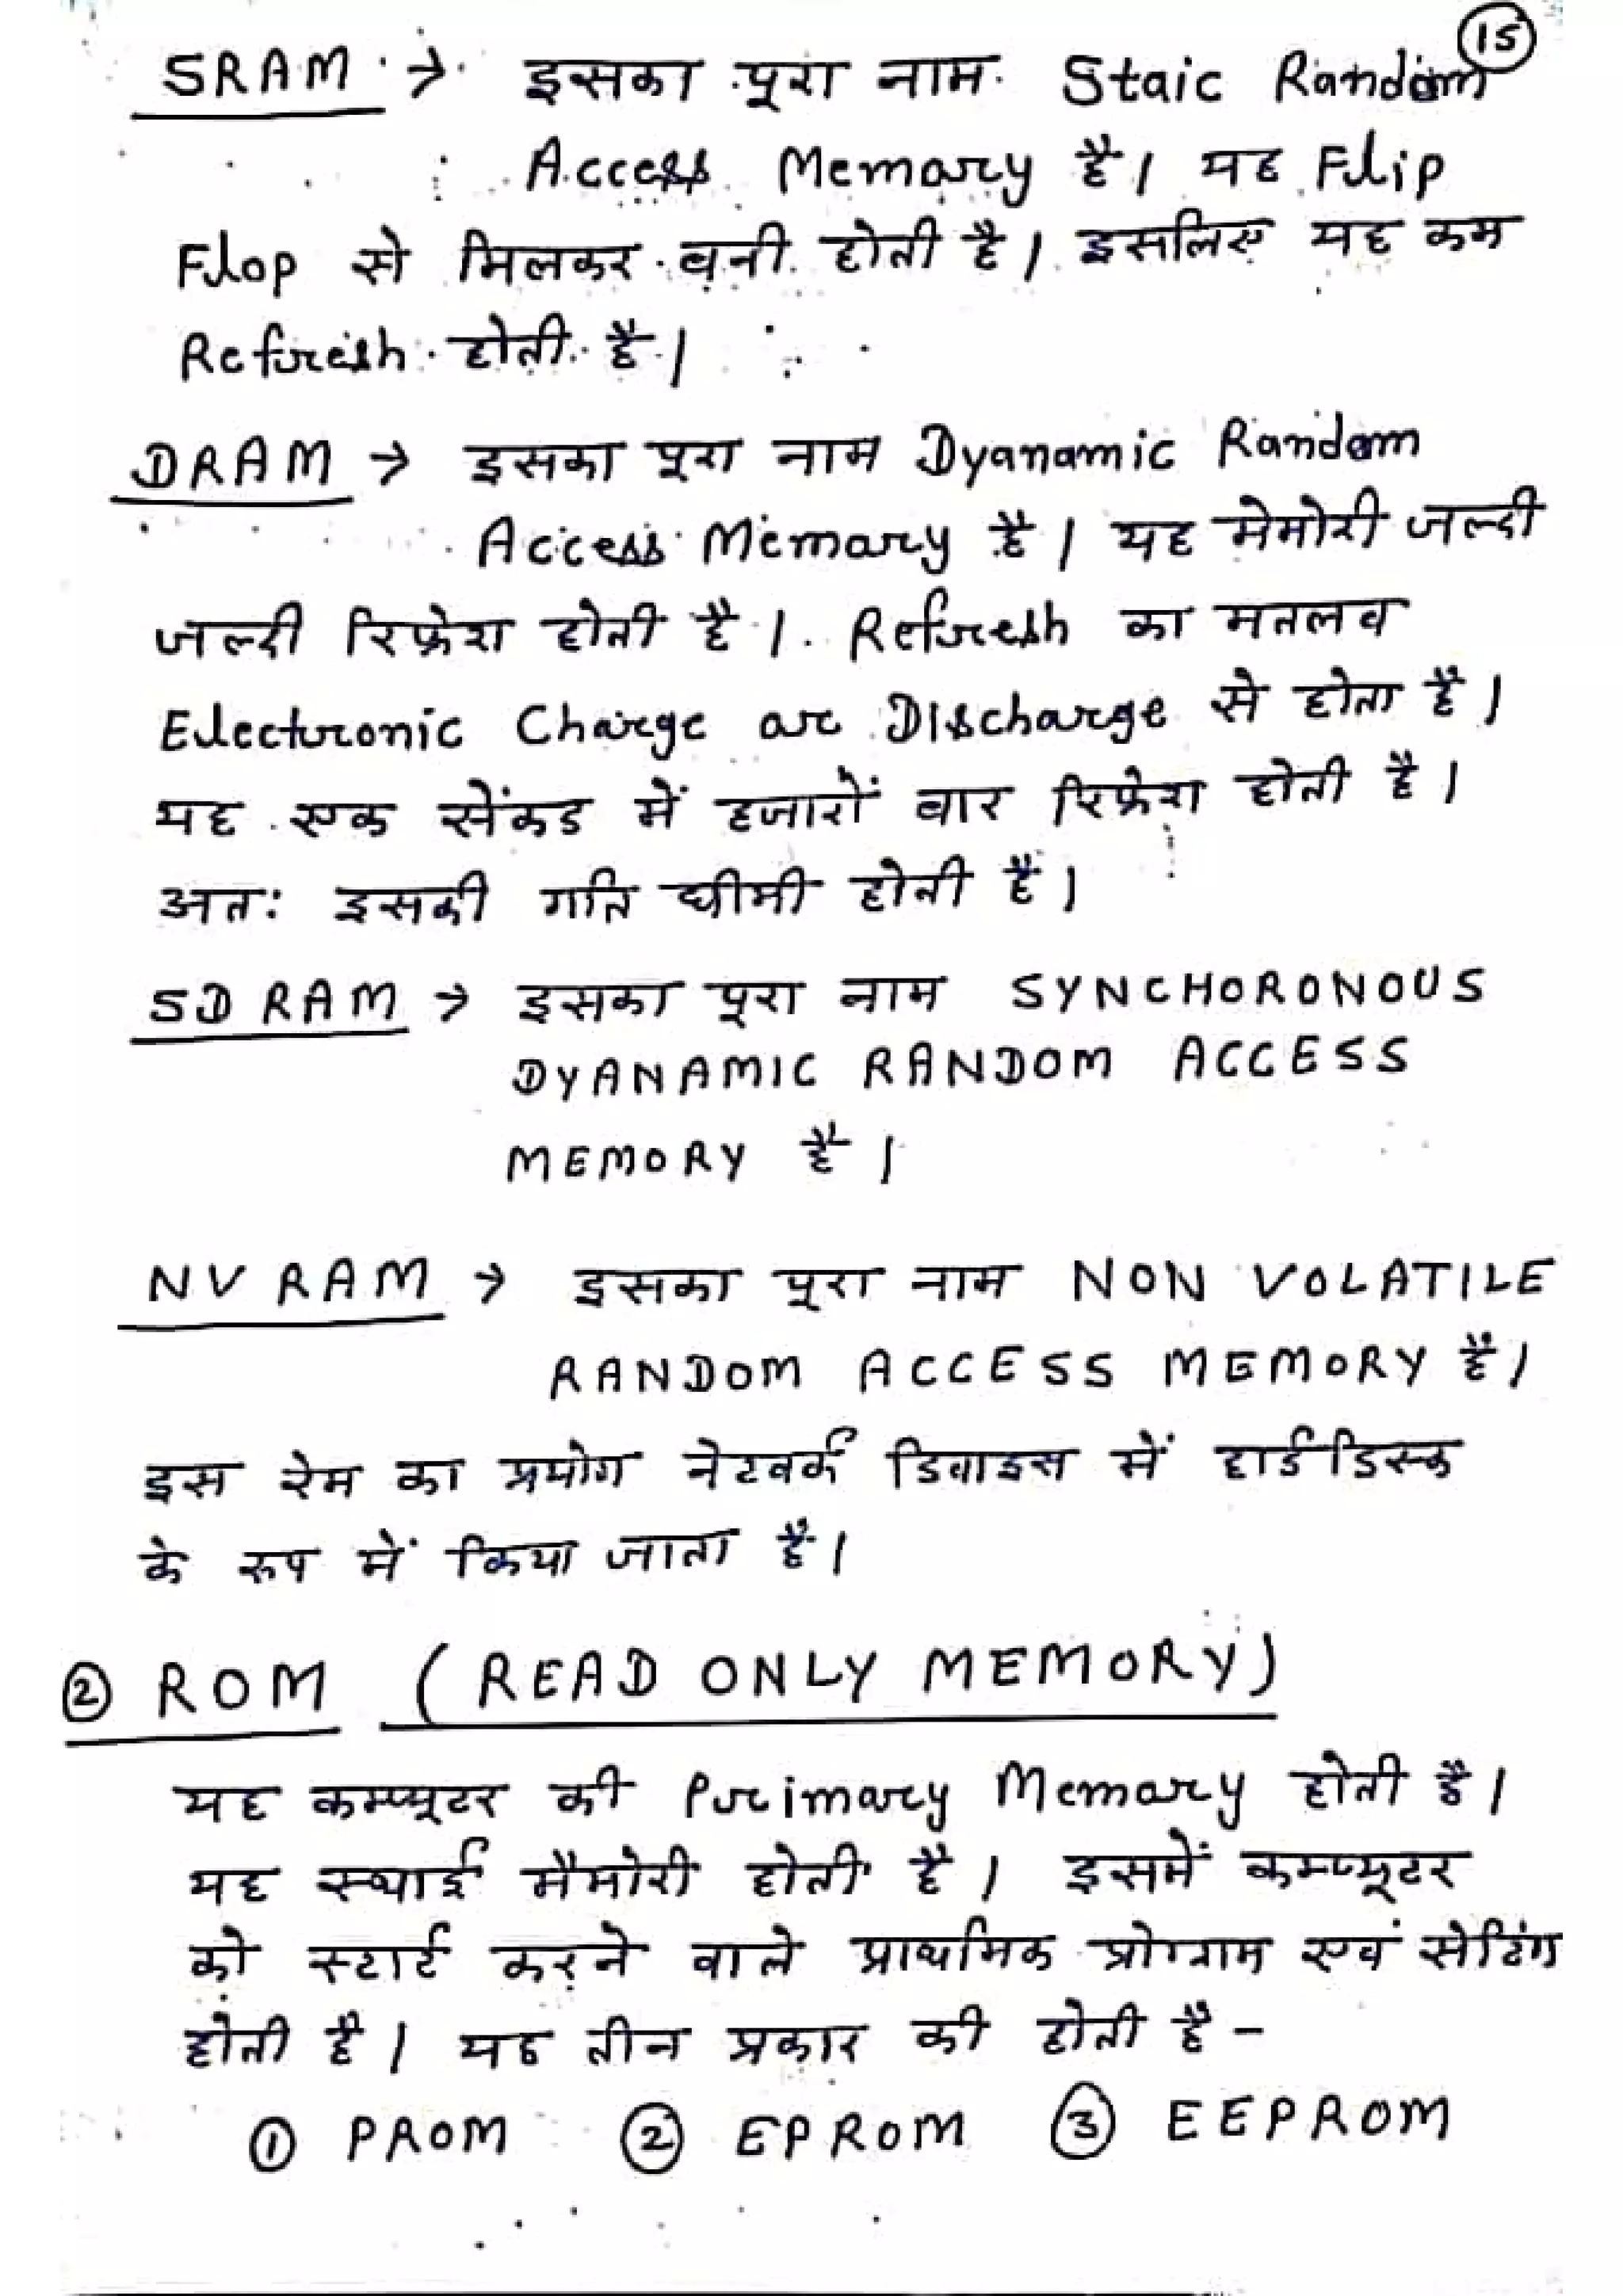 15
SRAM → इसका पूरा नाम Staic Random
Access Memory है। यह Flip
Flop से मिलकर बनी होती है। इसलिए यह कम
Refresh होती है।
DRAM → इसका पूरा नाम Dyanamic Random
Access Memory है। यह मेमोरी जल्दी
जल्दी रिफ्रेश होती है। Refresh का मतलव
Electronic Charge or Discharge से होता है।
यह एक सेंकड में हजारों वार रिफ्रेश होती है।
अतः इसकी गति धीमी होती है।
SD RAM → इसका पूरा नाम SYNCHORONOUS
DYANAMIC RANDOM ACCESS
MEMORY है।
NV RAM → इसका पूरा नाम NON VOLATILE
RANDOM ACCESS MEMORY है।
इस रेम का प्रयोग नेटवर्क डिवाइस में हार्डडिस्क
के रूप में किया जाता है।
② ROM (READ ONLY MEMORY)
यह कम्प्यूटर की Primary Memory होती है।
यह स्थाई मैमोरी होती है। इसमें कम्प्यूटर
को स्टार्ट करने वाले प्राथमिक प्रोग्राम एवं सेटिंग
होती है। यह तीन प्रकार की होती है -
① PROM ② EPROM ③ EEPROM